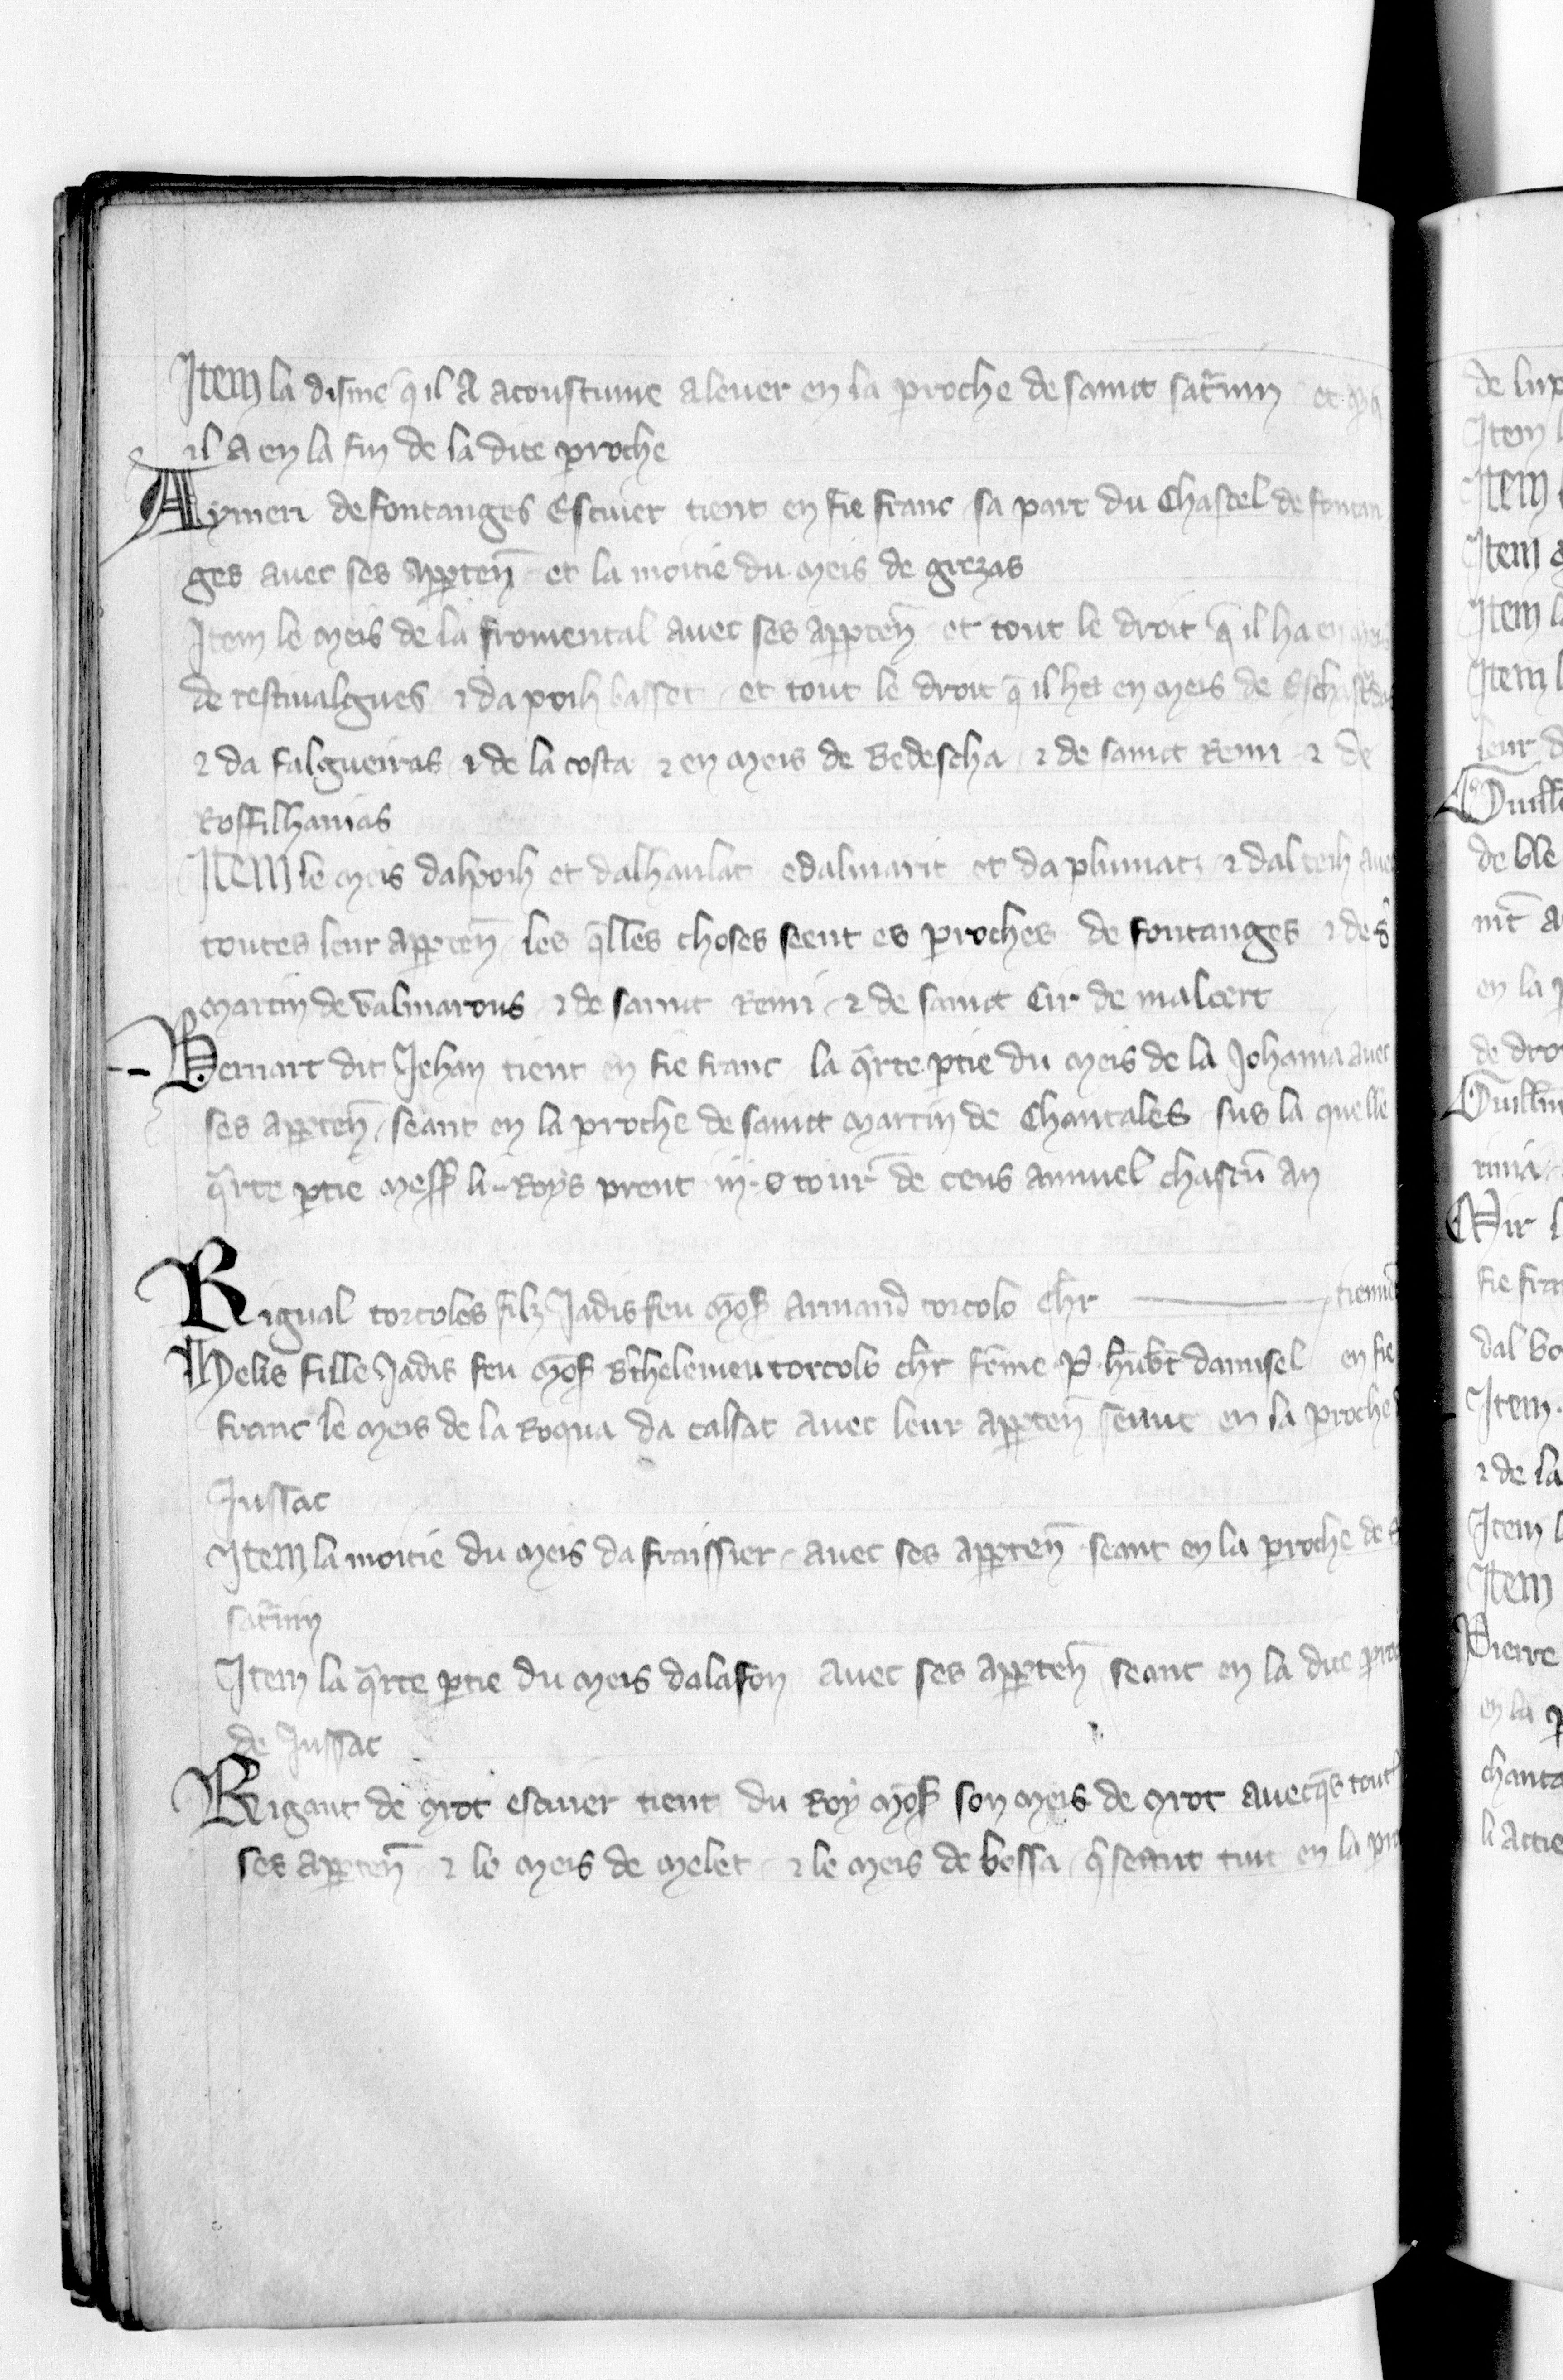 Item la disme q̄ il A acoustume a lever en la p̱roche de saint sat̃nin et
il A en la fin de la dite p̱roche
Aymeri de fontanges Escuier tient en fie franc sa part du Chastel de fontan
ges avec ses app̱ten̄ et la moitie du meis de grezas
Item le meis de la fromental avec ses app̱ten̄ et tout le droit q̄ il ha en meis
de restivalgues ⁊ da poih basset et tout le droit q̄ il het en meis de
⁊ da falgueiras ⁊ de la costa ⁊ en meis de Bedescha ⁊ de saint Remi ⁊ de
Roffilhanias
Item le meis dalpoih et dalhaulat e dalmarit et da plumatz ⁊ dal teih avec
toutes leur app̱ten̄ les q̄lles choses seent es p̱roches de fontanges ⁊ de s̃
martin de valmarous ⁊ de saint Remi ⁊ de saint Cir de malvert
Bernart dit Jehan tient en fie franc la q̄rte p̱tie du meis de la Johania avec
ses app̱ten̄ seant en la p̱roche de saint martin de Chantales sus la quelle
q̄rte p̱tie mess̃ li Roys prent iij s tour̄ de cens annuel chascũ an
Rigual torcoles filz Jadis feu mōs̃ armand torcolo ch̃r tienn̄t
Helis fille Jadis feu mōs̃ B̃thelemeu torcolo ch̃r fēme P̱ hūb̃t damisel en fie
franc le meis de la Roqua da calsat avec leur app̱ten̄ seant en la p̱roche
Jussac
Item la moitie du meis da fraissier avec ses app̱ten̄ seant en la p̱roche de s̃
sat̃nin
Item la q̄rte p̱tie du meis dalafon avec ses app̱ten̄ seant en la dite p̱ro
de Jussac
Rigaut de mrot escuier tient du Roy mōs̃ son meis de mrot avecq̄s tout
ses app̱ten̄ ⁊ le meis de melet ⁊ le meis de bessa q̄ seant tuit en la p̱ro
de lup
Item l
Item
Item
Item la
Item l
leur d
Guill̃
de ble
mt̄ a
en la p
de dro
Guill̃m
rinia
Oir l
fie fra
dal bo
Item
⁊ de la
Item l
Item
Pierre
en la p̱
chanta